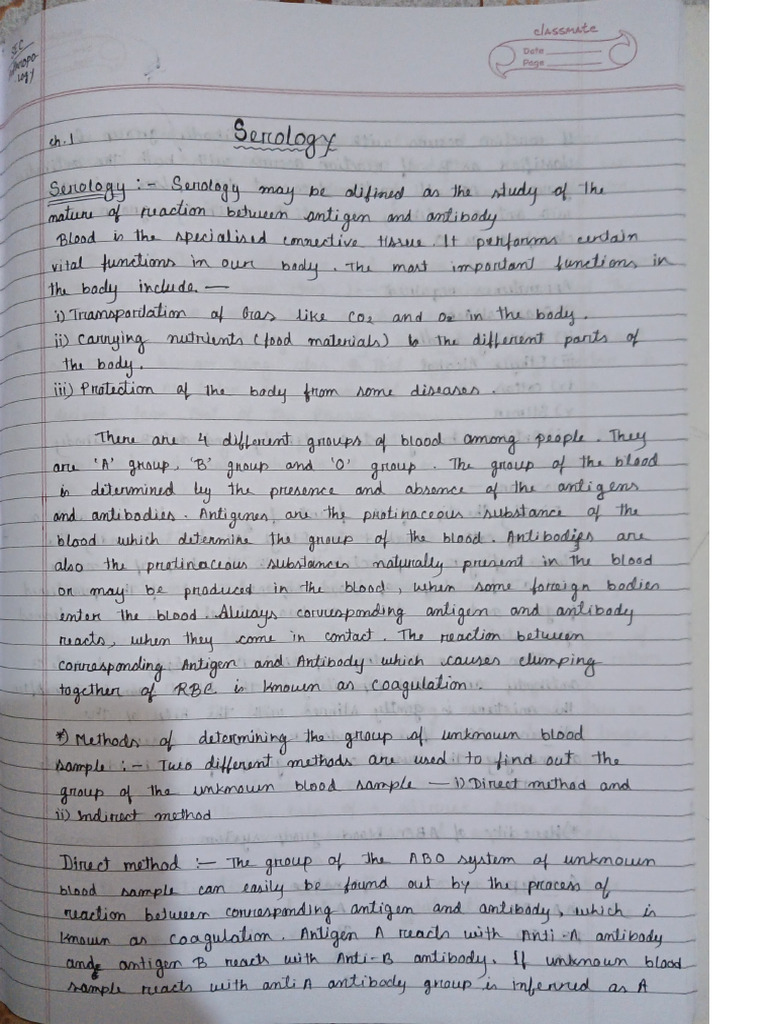 SC
Anthropo
logy
classmate
Date
Page
ch.1 Serology
Serology :- Serology may be difined as the study of the
nature of reaction between antigen and antibody
Blood is the specialised connective tissue. It performs certain
vital functions in our body. The most important functions in
the body include. —
i) Transportation of Gas like CO2 and O2 in the body.
ii) Carrying nutrients (food materials) to the different parts of
the body.
iii) Protection of the body from some diseases.
There are 4 different groups of blood among people. They
are 'A' group, 'B' group and 'O' group. The group of the blood
is determined by the presence and absence of the antigens
and antibodies. Antigenes are the protinaceous substance of the
blood which determine the group of the blood. Antibodies are
also the protinaceous substances naturally present in the blood
or may be produced in the blood, when some foreign bodies
enter the blood. Always corresponding antigen and antibody
reacts, when they come in contact. The reaction between
corresponding Antigen and Antibody which causes clumping
together of RBC is known as coagulation.
*) Methods of determining the group of unknown blood
sample :- Two different methods are used to find out the
group of the unknown blood sample — i) Direct method and
ii) Indirect method
Direct method :- The group of the ABO system of unknown
blood sample can easily be found out by the process of
reaction between corresponding antigen and antibody, which is
known as coagulation. Antigen A reacts with Anti-A antibody
and antigen B reacts with Anti-B antibody. If unknown blood
sample reacts with anti A antibody group is inferred as A